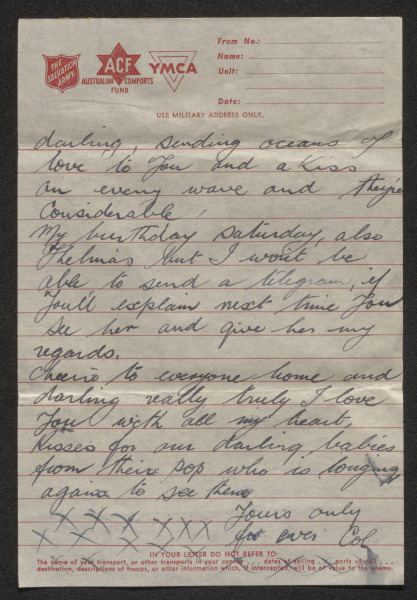 THE SALVATION ARMY
ACF
AUSTRALIAN COMFORTS FUND
YMCA
From No.:
Name:
Unit:
Date:
USE MILITARY ADDRESS ONLY.
darling, sending oceans of
love to You and a Kiss
on every wave and they're
Considerable,
My birthday Saturday, also
Thelma's but I won't be
able to send a telegram, if
You'll explain next time You
see her and give her my
regards.
Cheerio to everyone home and
darling really truly I love
You with all my heart,
Kisses for our darling babies
from their Pop who is longing
again to see them
X X X X X X X Yours only
X X X X X X for ever Col
IN YOUR LETTER DO NOT REFER TO:
The name of your transport, or other transports in your convoy . . . dates of sailing . . . ports of call . . .
destination, descriptions of troops, or other information which, if intercepted, will be of value to the enemy.